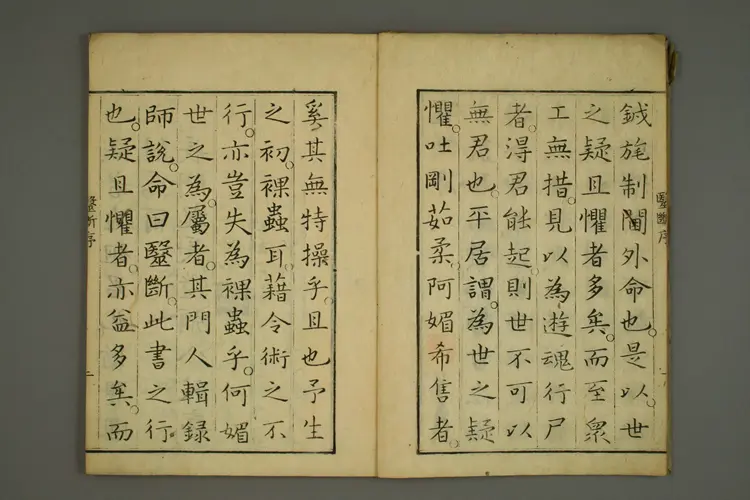 鉞旄制閫外命也。是以。世
之疑且懼者多矣。而至衆
工無措。見以為遊魂行尸
者。淂君能起。則世不可以
無君也。平居謂。為世之疑
懼。吐剛茹柔。阿媚希售者。
毉斷序
奚其無特操乎。且也予生
之初。裸蟲耳。藉令術之不
行。亦豈失為裸蟲乎。何媚
世之為。屬者。其門人輯録
師說。命曰毉斷。此書之行
也。疑且懼者。亦益多矣。而
毉斷序
二